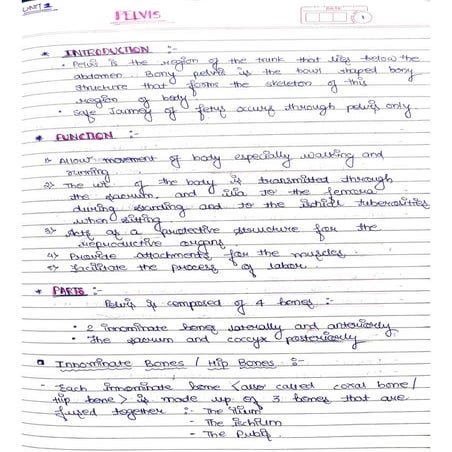 UNIT 2
PELVIS
DATE
1
* INTRODUCTION :-
• Pelvis is the region of the trunk that lies below the
abdomen. Bony pelvis is the bowl shaped bony
structure that forms the skeleton of this
region of body
• Safe Journey of fetus occurs through pelvis only
* FUNCTION :-
1> Allow movement of body especially walking and
running.
2> The wt. of the body is transmitted through
the sacrum, and ilia to the femora
during standing and to the ischial tuberosities
when sitting
3> Acts as a protective structure for the
reproductive organs.
4> Provide attachments for the muscles.
5> Facilitate the process of labor.
* PARTS :-
Pelvis is composed of 4 bones :-
• 2 innominate bones laterally and anteriorly
• The sacrum and coccyx posteriorly
Innominate Bones / Hip Bones :-
- Each innominate bone <also called coxal bone/
hip bone> is made up of 3 bones that are
fused together :- The ilium
- The ischium
- The Pubis.